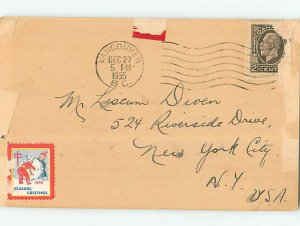 VANCOUVER
DEC 27
5 PM
1935
B.C.
2 CENTS
Mr. Liscum Diven
524 Riverside Drive,
New York City.
N.Y.
USA.
1935
SEASONS
GREETINGS